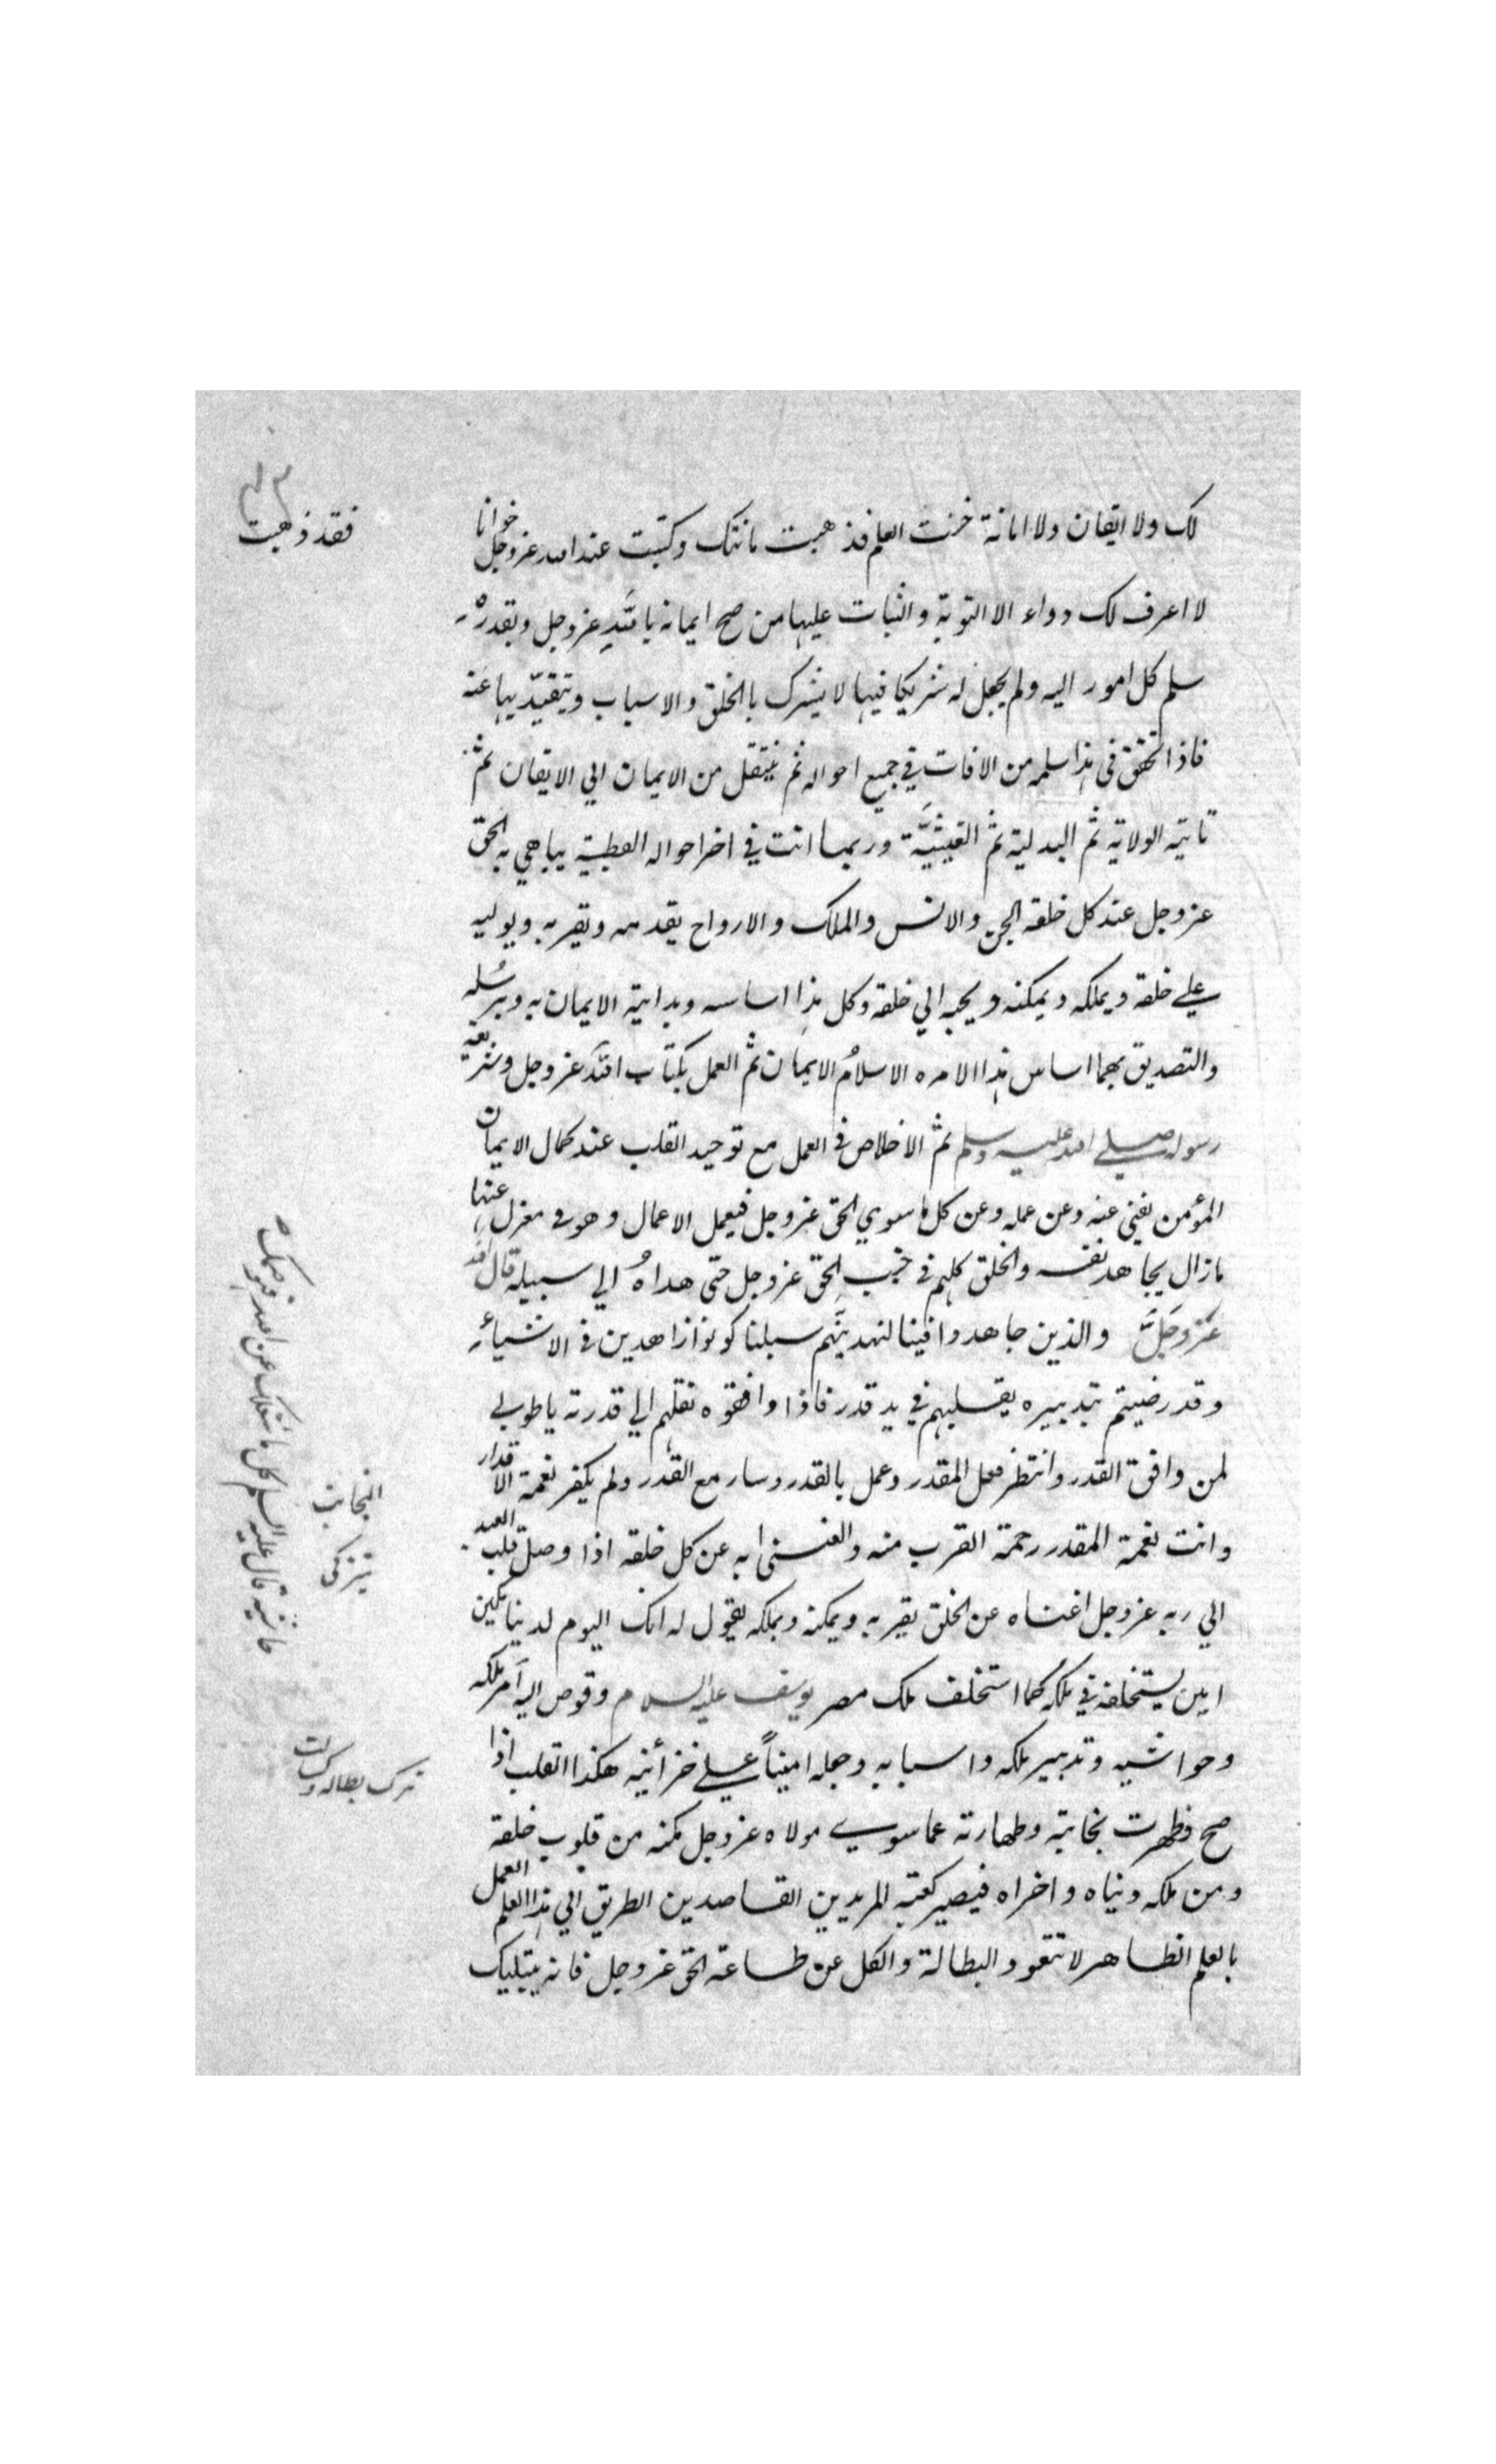 لك ولا ايقان ولا امانة خنت العلم فذهبت مانتك وكتبت عند الله عزوجل خوانا
لا اعرف لك دواء الا التوبة والثبات عليها من صح ايمانه بالله عزوجل وبقدره
سلم كل امور اليه ولم يجعل له شريكا فيها لا يشرك بالخلق والاسباب ويتقيد بها عنه
فاذا تحقق فى هذا سلمه من الافات في جميع احواله ثم ينتقل من الايمان الي الايقان ثم
تايته الولاية ثم البدلية ثم الغيثية وربما انت في اخر احواله القطبية يباهي به الحق
عزوجل عند كل خلقه الجن والانس والملك والارواح يقدمه ويقربه ويوليه
علي خلقه ويملكه ويمكنه ويحبه الي خلقه وكل هذا اساسه وبداية الايمان به وبرسله
والتصديق بهما اساس هذا الامره الاسلام الايمان ثم العمل بكتاب الله عزوجل وشريعة
رسوله صلى الله عليه وسلم ثم الاخلاص في العمل مع توحيد القلب عند كمال الايمان
المؤمن يفني عنه وعن عمله وعن كل ما سوي الحق عزوجل فيعمل الاعمال وهو في معزل عنها
ما زال يجاهد نفسه والخلق كلهم في جنب الحق عزوجل حتى هداه الي سبيله قال الله
عزوجل والذين جاهدوا فينا لنهدينهم سبلنا كونوا زاهدين في الاشياء
وقد رضيتم بتدبيره يقلبهم في يد قدر فاذا وافقوه نقلهم الي قدرته يا طوبي
لمن وافق القدر وانتظر فعل المقدر وعمل بالقدر وسار مع القدر ولم يكفر نعمة الاقدار
وانت نعمة المقدر رحمة القرب منه والغنى به عن كل خلقه اذا وصل قلب العبد
الي ربه عزوجل اغناه عن الخلق يقربه ويمكنه ويملكه يقول له انك اليوم لدينا مكين
امين يستخلفه في ملكه كما استخلف ملك مصر يوسف عليه السلام وفوض اليه امر ملكه
وحواشيه وتدبير ملكه واسبابه وجعله امينا علي خزائنه هكذا القلب اذا
صح وظهرت نجابته وطهارته عما سوي مولاه عزوجل مكنه من قلوب خلقه
ومن ملكه دنياه واخراه فيصير كعبة المريدين القاصدين الطريق الي هذا العلم العمل
بالعلم الظاهر لا تتعود البطالة والكل عن طاعة الحق عزوجل فانه يبتليك
فقد ذهبت
النجابت
تيزكى
حاشيه قال عليه السلام كل ما شغلك عن الله فهو صنمك
ترك بطاله وكسالت